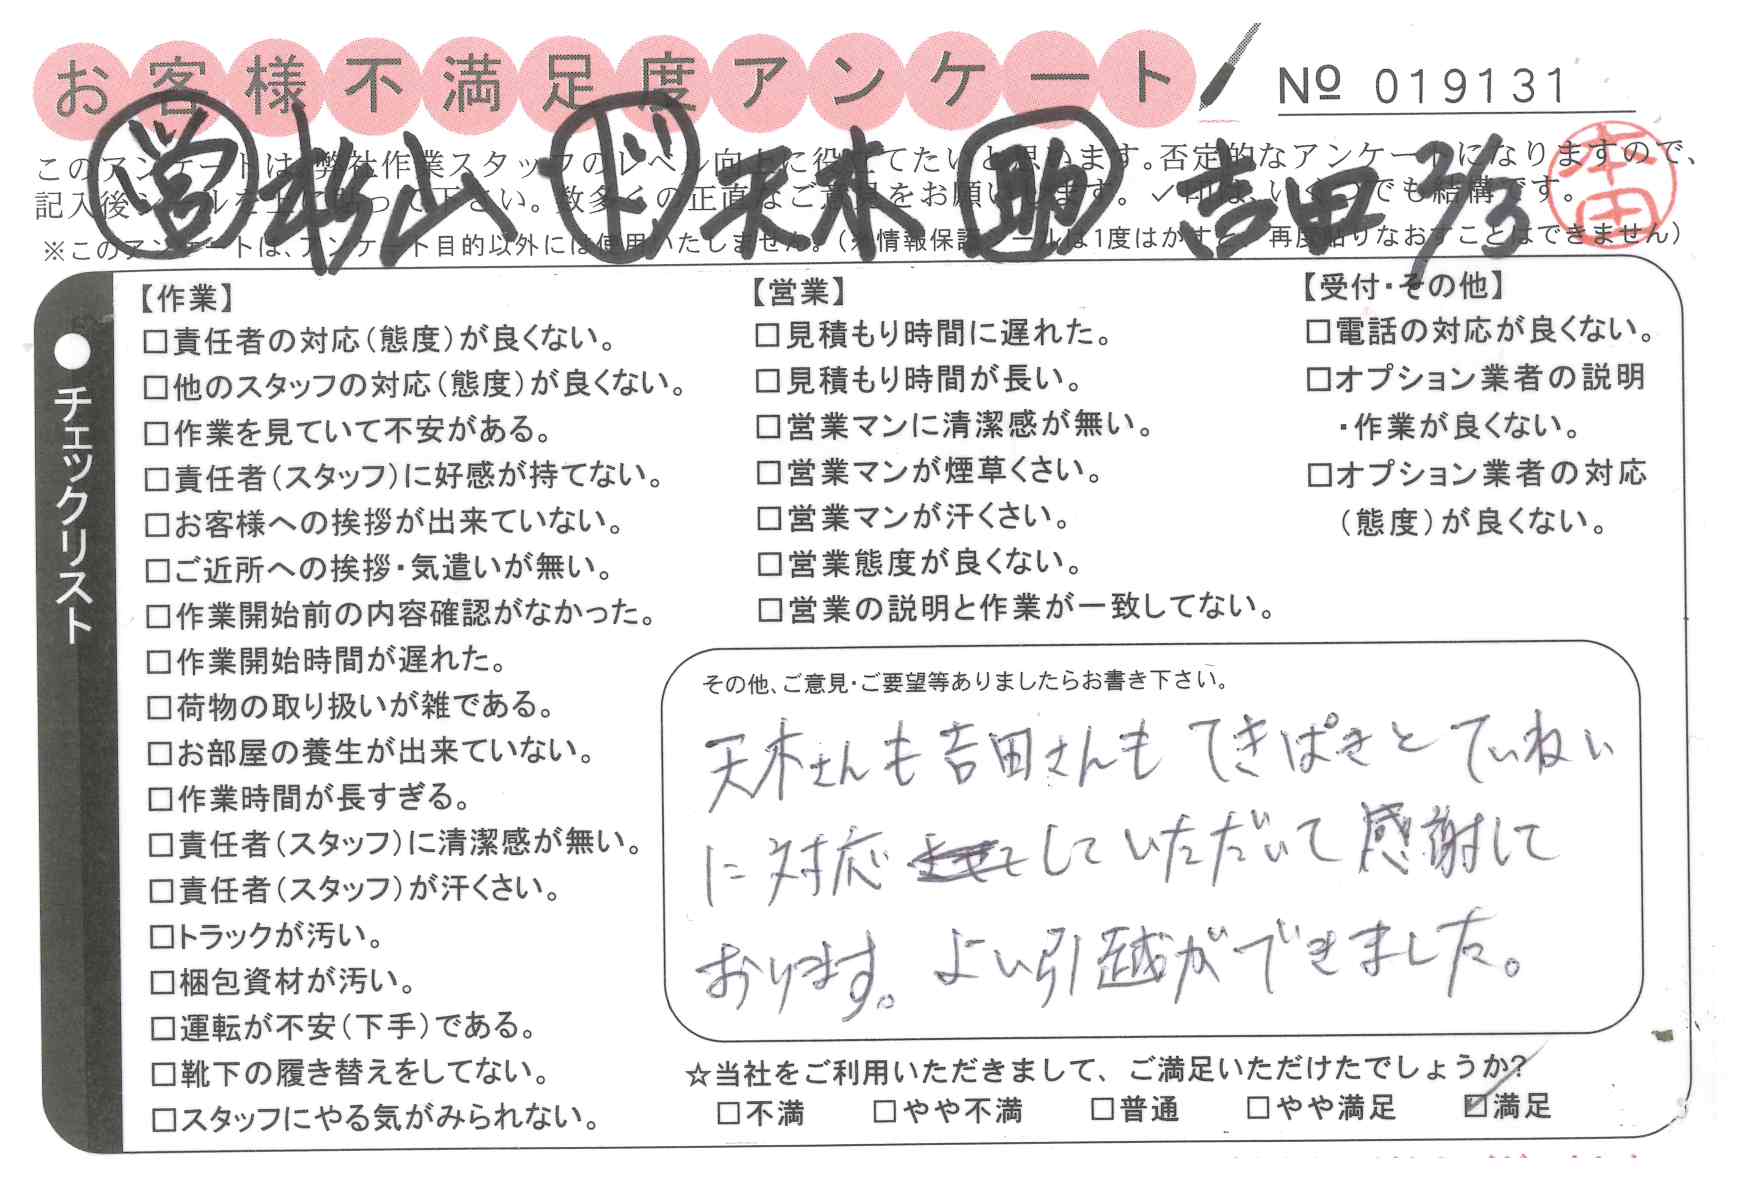 お客様不満足度アンケート
Nº 019131
営 杉山 ド 天木 助 吉田 2/3
本田
このアンケートは、弊社作業スタッフのレベル向上に役立てたいと思います。否定的なアンケートになりますので、
記入後シールを上に貼って下さい。数多くの正直なご意見をお願いします。✓印は、いくつでも結構です。
※このアンケートは、アンケート目的以外には使用いたしません。(※情報保証シールは1度はがすと、再度貼りなおすことはできません)
●チェックリスト
【作業】
□責任者の対応(態度)が良くない。
□他のスタッフの対応(態度)が良くない。
□作業を見ていて不安がある。
□責任者(スタッフ)に好感が持てない。
□お客様への挨拶が出来ていない。
□ご近所への挨拶・気遣いが無い。
□作業開始前の内容確認がなかった。
□作業開始時間が遅れた。
□荷物の取り扱いが雑である。
□お部屋の養生が出来ていない。
□作業時間が長すぎる。
□責任者(スタッフ)に清潔感が無い。
□責任者(スタッフ)が汗くさい。
□トラックが汚い。
□梱包資材が汚い。
□運転が不安(下手)である。
□靴下の履き替えをしてない。
□スタッフにやる気がみられない。
【営業】
□見積もり時間に遅れた。
□見積もり時間が長い。
□営業マンに清潔感が無い。
□営業マンが煙草くさい。
□営業マンが汗くさい。
□営業態度が良くない。
□営業の説明と作業が一致してない。
【受付・その他】
□電話の対応が良くない。
□オプション業者の説明
・作業が良くない。
□オプション業者の対応
(態度)が良くない。
その他、ご意見・ご要望等ありましたらお書き下さい。
天木さんも吉田さんもてきぱきとていねい
に対応していただいて感謝して
おります。よい引越ができました。
☆当社をご利用いただきまして、ご満足いただけたでしょうか?
□不満 □やや不満 □普通 □やや満足 ☑満足